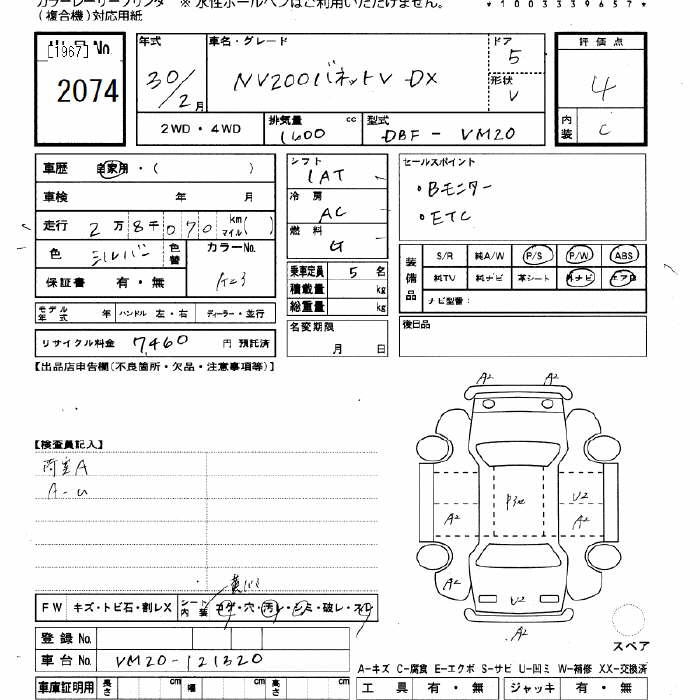 カラーレーザープリンタ ※ 水性ボールペンはご利用いただけません。
(複合機)対応用紙
*1003339657*
[1967] No
2074
年式 30/2月
車名・グレード NV200バネットV DX
ドア 5
形状 V
評価点 4
内装 C
2WD・4WD
排気量 1600 cc
型式 DBF-VM20
車歴 自家用・( )
車検 年 月
走行 2万8千070 km マイル( )
色 シルバー 色替 カラーNo. K23
保証書 有・無
シフト IAT
冷房 AC
燃料 G
乗車定員 5 名
積載量 kg
総重量 kg
セールスポイント
・Bモニター
・ETC
装備品 S/R 純A/W P/S P/W ABS
純TV 純ナビ 革シート 外ナビ エアB
ナビ型番:
モデル年式 年 ハンドル 左・右 ディーラー・並行
名変期限 月 日
後日品
リサイクル料金 7,460 円 預託済
【出品店申告欄(不良箇所・欠品・注意事項等)】
【検査員記入】
荷室A
A-U
A2 A2
A2 U2 A2
A2 U2
A2
FW キズ・トビ石・割レX シート内装 コゲ・穴・汚レ・シミ・破レ・スレ
スペア
登録No.
車台No. VM20-121320
A-キズ C-腐食 E-エクボ S-サビ U-凹ミ W-補修 XX-交換済
車庫証明用 長さ cm 幅 cm 高さ cm
工具 有・無 ジャッキ 有・無